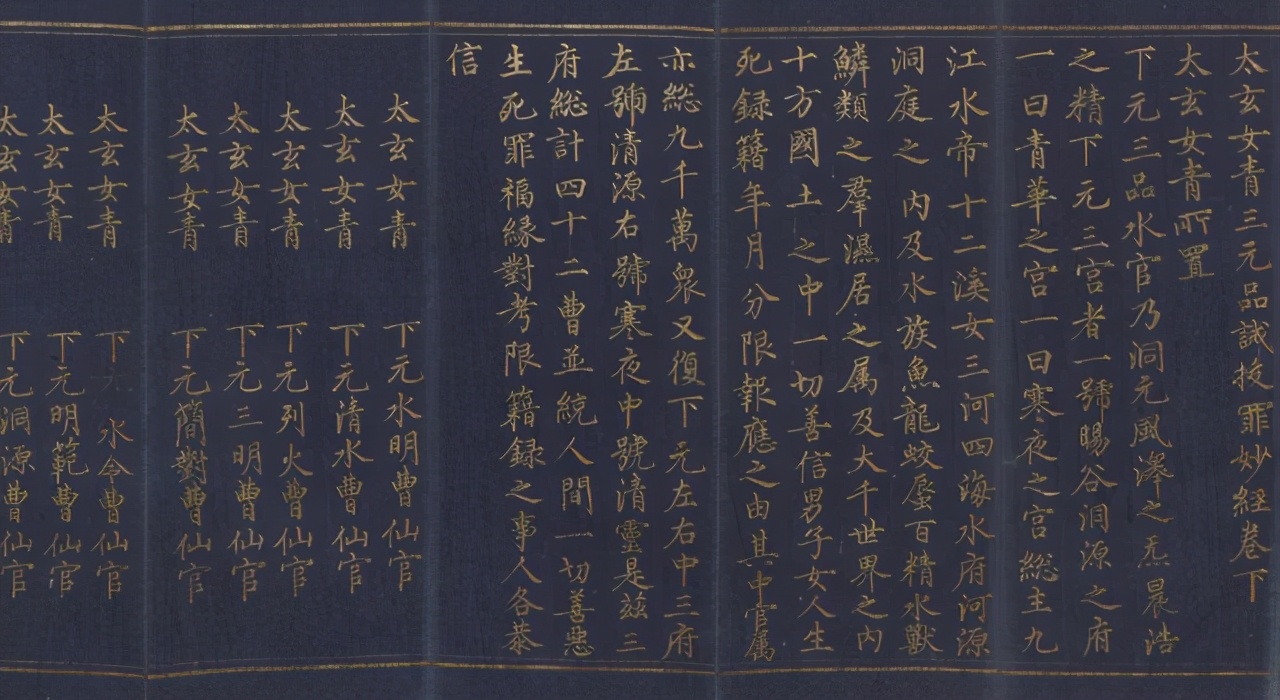 太玄女青三元品誡拔罪妙経卷下
太玄女青所置
下元三品水官乃洞元風澤之炁晨浩
之精下元三宫者一號暘谷洞源之府
一曰青華之宫一曰寒夜之宫総主九
江水帝十二溪女三河四海水府河源
洞庭之内及水族魚龍蛟蜃百精水獸
鱗類之羣濕居之属及大千世界之内
十方國土之中一切善信男子女人生
死録籍年月分限報應之由其中官属
亦総九千萬衆又復下元左右中三府
左號清源右號寒夜中號清靈是兹三
府総計四十二曹並統人間一切善惡
生死罪福緣對考限籍録之事人各恭
信
太玄女青 下元水明曹仙官
太玄女青 下元清水曹仙官
太玄女青 下元列火曹仙官
太玄女青 下元三明曹仙官
太玄女青 下元簡對曹仙官
太玄女青 下元水令曹仙官
太玄女青 下元明範曹仙官
太玄女青 下元洞源曹仙官